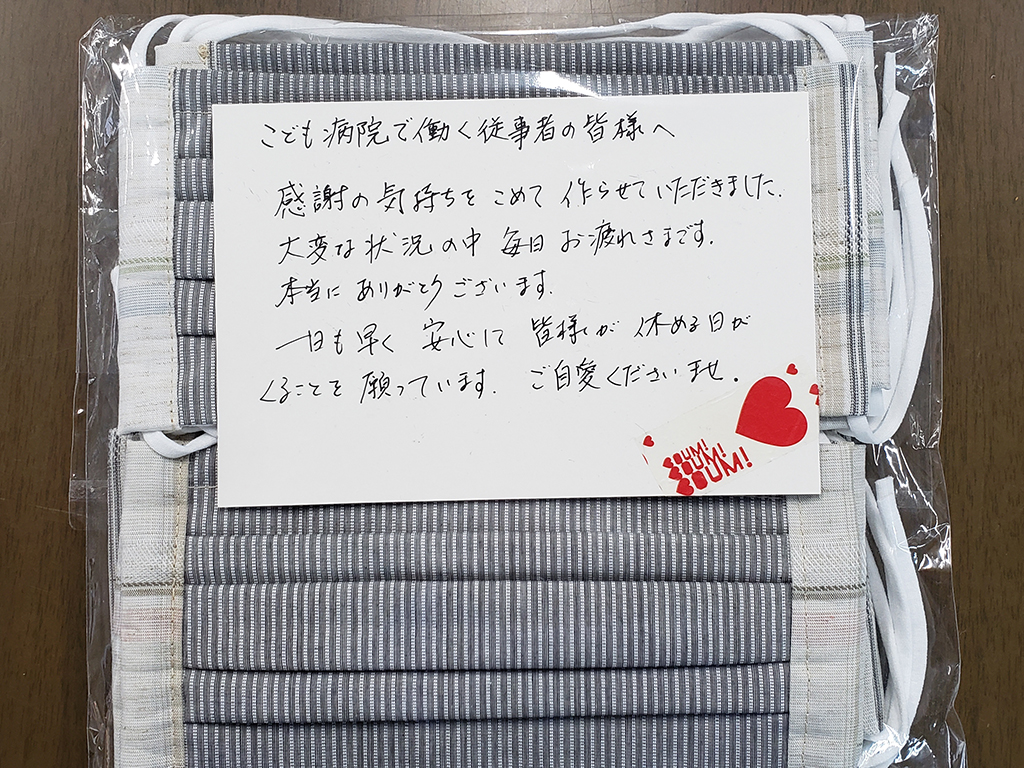 こども病院で働く従事者の皆様へ
感謝の気持ちをこめて 作らせていただきました.
大変な状況の中 毎日 お疲れさまです.
本当に ありがとうございます.
一日も早く 安心して 皆様が 休める日が
くることを 願っています. ご自愛くださいませ.
OUM!
OUM!
OUM!